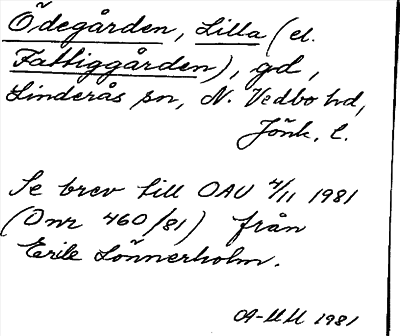 Ödegården, Lilla (el.
Fattiggården), gd,
Linderås sn, N. Vedbo hd,
Jönk. l.
Se brev till OAU 4/11 1981
(Dnr 460/81) från
Erik Lönnerholm.
OA-MM 1981